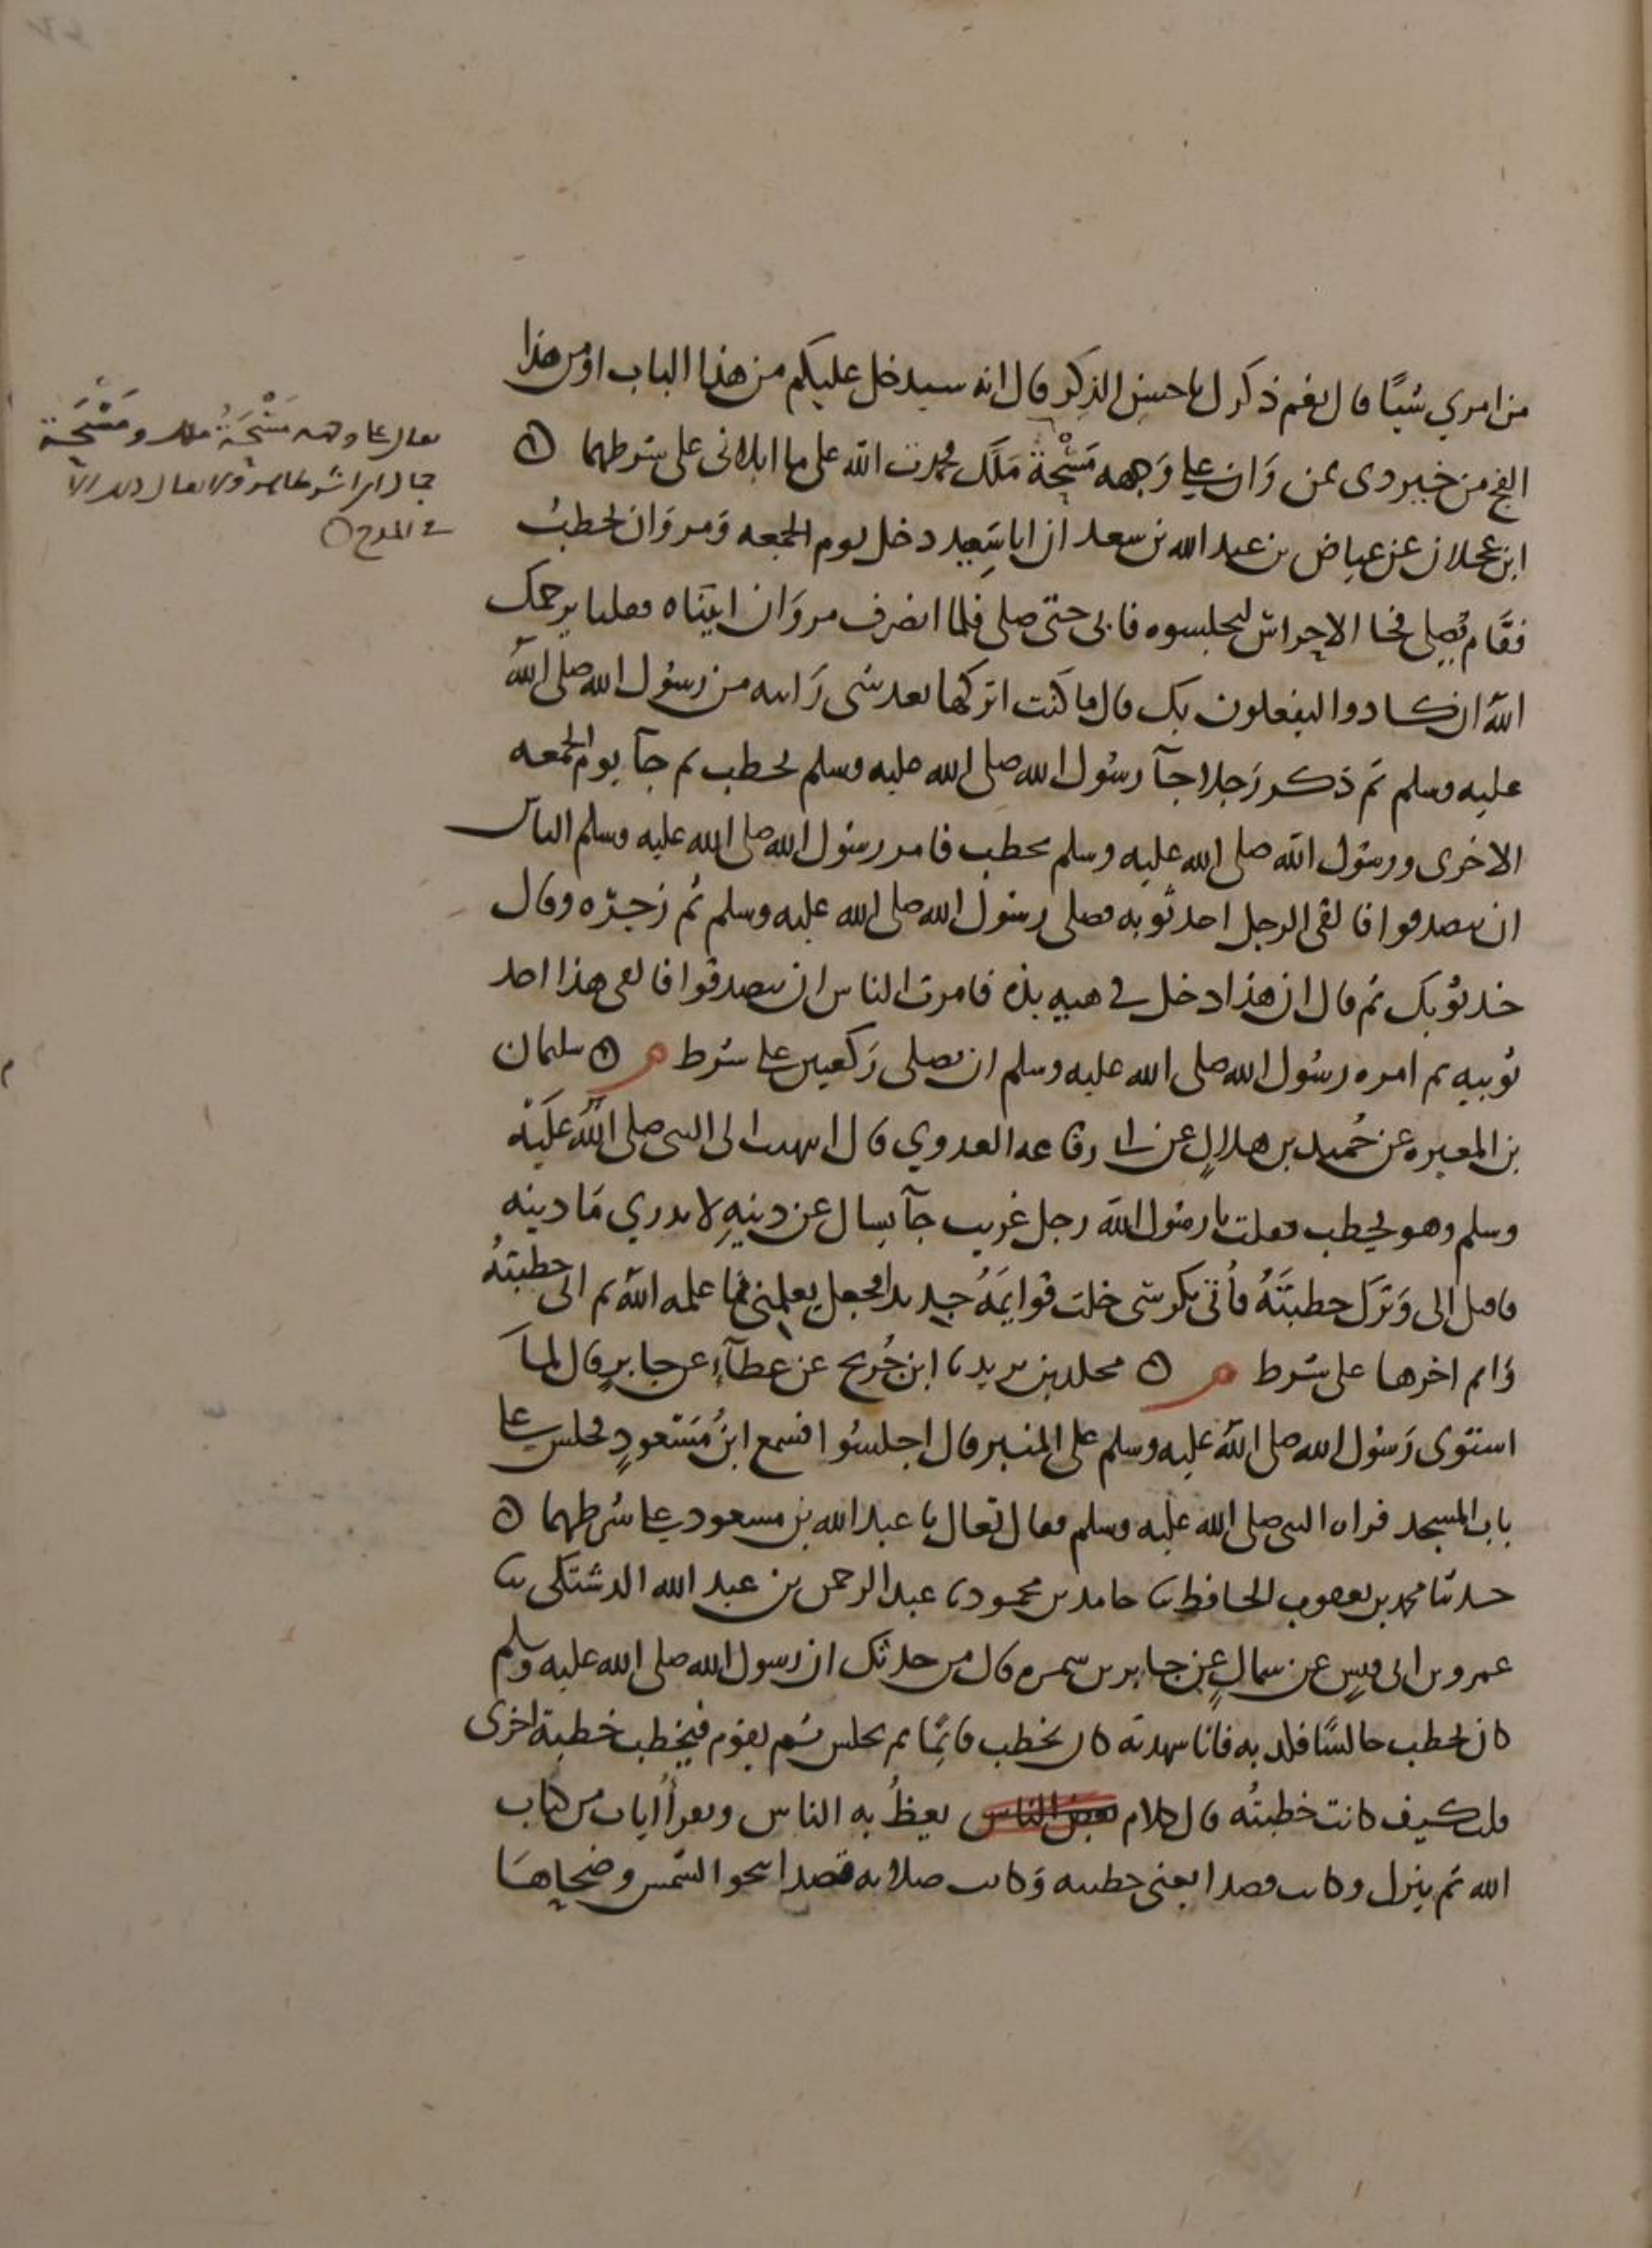 من امري شيًا قال نعم ذكرك باحسن الذكر قال انه سيدخل عليكم من هذا الباب او من هذا
الفج من خير ذي يمن وَان على وَجهه مَسْحَةُ مَلَك فحمدت الله على ما ابلاني على شرطهما
ابن عجلان عن عياض بن عبد الله بن سعد ان ابا سَعِيد دخل يوم الجمعه وَمروَان يخطبُ
فقَام يُصلى فجا الاحراسُ ليجلسوه فابى حتى صلى فلما انصرف مروَان اتيناه فقلنا يرحمك
اللهُ ان كادوا ليفعلون بك قال ما كنت اتركها بعد شى رَايته من رسُول الله صلى اللهُ
عليه وسلم ثم ذكر رَجلا جآ ورسُول الله صلى الله عليه وسلم يخطب ثم جآ يوم الجمعه
الاخرى ورسُول الله صلى الله عليه وسلم يخطب فامر رسُول الله صلى الله عليه وسلم الناس
ان يتصدقوا فالقى الرجل احد ثوبيه فصلى رسُول الله صلى الله عليه وسلم ثم زجرَه وقال
خذ ثوبك ثم قال ان هذا دخل في هيه بذه فامرت الناس ان يتصدقوا فالقى هذا احد
ثوبيه ثم امره رسُول الله صلى الله عليه وسلم ان يصلى رَكعتين على شرط م سليمان
بن المغيره عن حُميد بن هلالٍ عن ابي رفاعه العدوي قال انتهيت الى النبى صلى اللهُ عَليْه
وسلم وهو يخطب فقلت يا رسُول الله رجل غريب جآ يسال عن دينهِ لا يدري مَا دينه
فاقبل الى وَتركَ خطبتَهُ فأتى بكرسى خلت قوايمَهُ حديدا فجعل يعلمنى مما علمه اللهُ ثم اتى خطبتَهُ
وَاتم اخرها على شرط م مخلد بن يزيد ثنا ابن جُريج عن عطآءٍ عن جابرٍ قال لمَا
استوى رَسُول الله صلى اللهُ عليه وسلم على المنبر قال اجلسُوا فسمع ابنُ مَسْعودٍ فجلس على
باب المسجد فراه النبى صلى الله عليه وسلم فقال تعال يا عبد الله بن مسعود على شرطهما
حدثنا محمد بن يعقوب الحافظ ثنا حامد بن محمود ثنا عبد الرحمن بن عبد الله الدشتكى ثنا
عمرو بن ابى قيسٍ عن سماكٍ عن جابر بن سمره قال من حدثك ان رسول الله صلى الله عليه وسلم
كان يخطب جالسًا فكذبه فانا شهدته كان يخطب قايمًا ثم يجلس ثم يقوم فيخطب خطبة اخرى
قلت كيف كانت خطبتُه قال كلام يعظُ به الناس ويقرأُ ايات من كتاب
الله ثم ينزل وكانت قصدا يعنى خطبته وَكانت صلاته قصدا نحو الشمس وضحاهَا
يقال على وجهه مَسْحَةُ ملك ومَسْحَة
جمال اى اثر ظاهر ولا يقال ذلك الا
في المدح